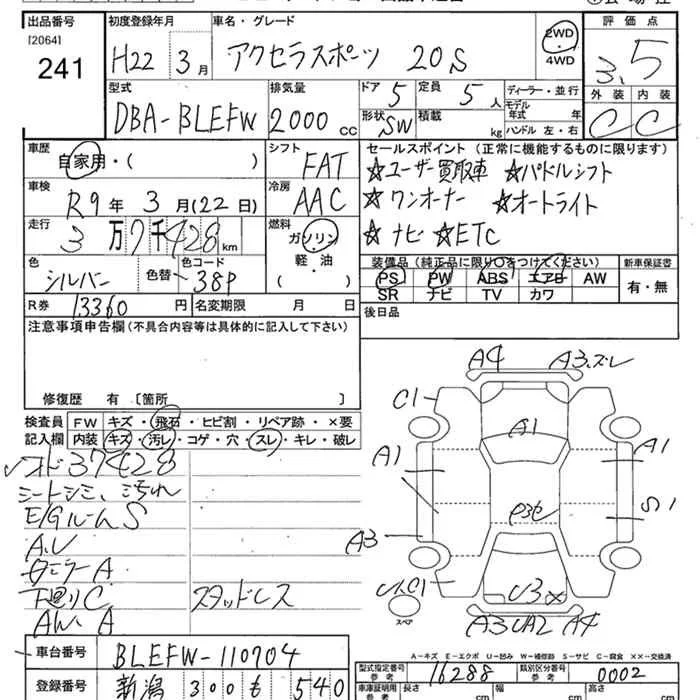 出品番号
[2064]
241
初度登録年月
H22年 3月
車名・グレード
アクセラスポーツ 20S
2WD
・
4WD
評価点
3.5
外装 内装
C C
型式
DBA-BLEFW
排気量
2000 CC
ドア 5
定員 5人
形状 SW
積載 kg
ディーラー・並行
モデル年式 年
ハンドル 左・右
車歴
自家用・( )
シフト
FAT
車検
R9年 3月(22日)
冷房
AAC
走行
3万7千428km
燃料
ガソリン
軽・油
( )
色
シルバー
色替
色コード
38P
R券 13360円
名変期限 月 日
セールスポイント(正常に機能するものに限ります)
☆ユーザー買取車 ☆パドルシフト
☆ワンオーナー ☆オートライト
☆ナビ ☆ETC
装備品(純正品に限り○をつけてください)
PS PW ABS エアB AW
SR ナビ TV カワ
新車保証書
有・無
後日品
注意事項申告欄(不具合内容等は具体的に記入して下さい)
修復歴 有 〔箇所 〕
検査員記入欄
FW キズ・飛石・ヒビ割・リペア跡・×要
内装 キズ・汚レ・コゲ・穴・スレ・キレ・破レ
オド37428
シートシミ、こ汚れ
E/GルームS
下廻りC スタッドレス
AW A
A4 A3.ズレ
C1
A1
A1 A1
S1
A3
U3
A3 UA2 A4
スペア
A-キズ E-エクボ U-凹み W-補修跡 S-サビ C-腐食 ××-交換済
車台番号 BLEFW-110704
登録番号 新潟 300 も 540
型式指定番号 参考 16288
類別区分番号 参考 0002
車庫証明用 参考 長さ cm 幅 cm 高さ cm